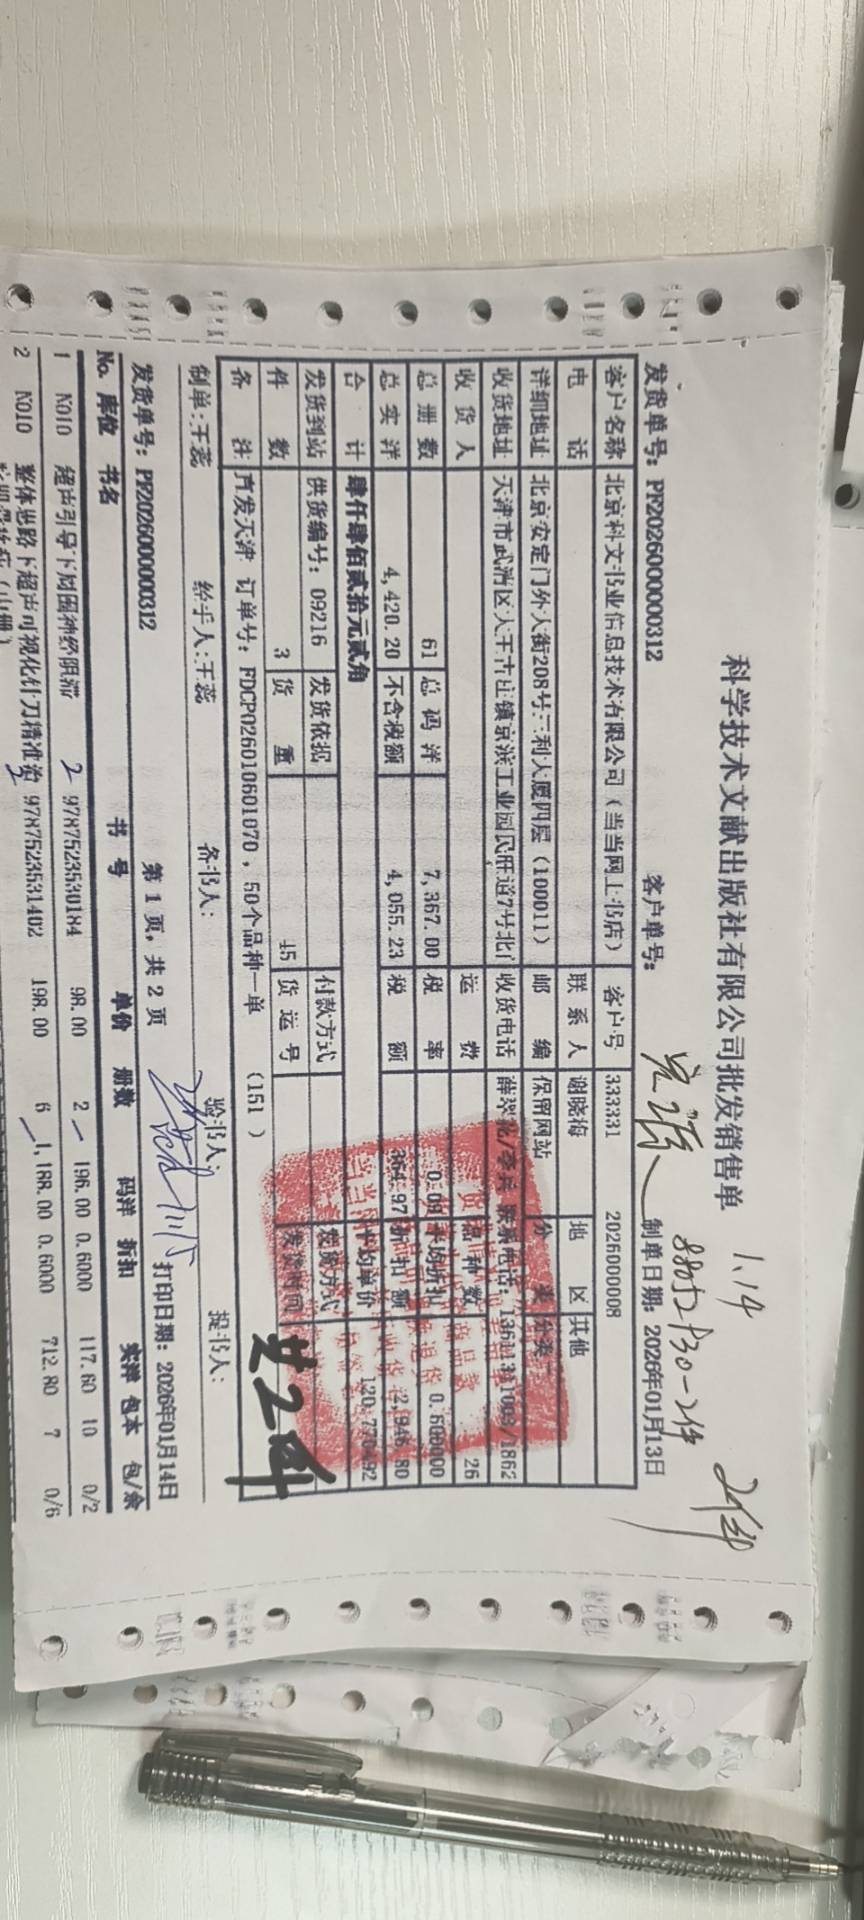 科学技术文献出版社有限公司批发销售单
1.14
2件
88052P30-2件
发货单号: PF2026000000312 客户单号: 制单日期: 2026年01月13日
客户名称 北京科文书业信息技术有限公司(当当网上书店) 客户号 333331 2026000008
电 话 联系人 谢晓梅 地 区 其他
详细地址 北京安定门外大街208号三利大厦四层(100011) 邮 编 保留网站 分 类 分类一
收货地址 天津市武清区大王古庄镇京滨工业园民旺道7号北门 收货电话 联系电话:
收货人 运 费 品种数 26
总册数 61 总码洋 7,367.00 税 率 0.09 平均折扣 0.600000
总实洋 4,420.20 不含税额 4,055.23 税 额 364.97 折扣额 2,946.80
合 计 肆仟肆佰贰拾元贰角 平均单价 120.770492
发货到站 供货编号: 09216 发货依据 付款方式 发货方式
件 数 3 货 重 15 货运号 发货时间
备 注 直发天津 订单号: FDCP026010601070, 50个品种一单 (151)
共2件
制单:王蕊 经手人:王蕊 备书人: 验书人: 提书人:
发货单号: PF2026000000312 第 1 页, 共 2 页 打印日期: 2026年01月14日
No. 库位 书名 书 号 单价 册数 码洋 折扣 实洋 包本 包/余
1 N010 超声引导下周围神经阻滞 2 9787523530184 98.00 2 196.00 0.6000 117.60 10 0/2
2 N010 整体思路下超声可视化针刀精准治 9787523531402 198.00 6 1,188.00 0.6000 712.80 7 0/6